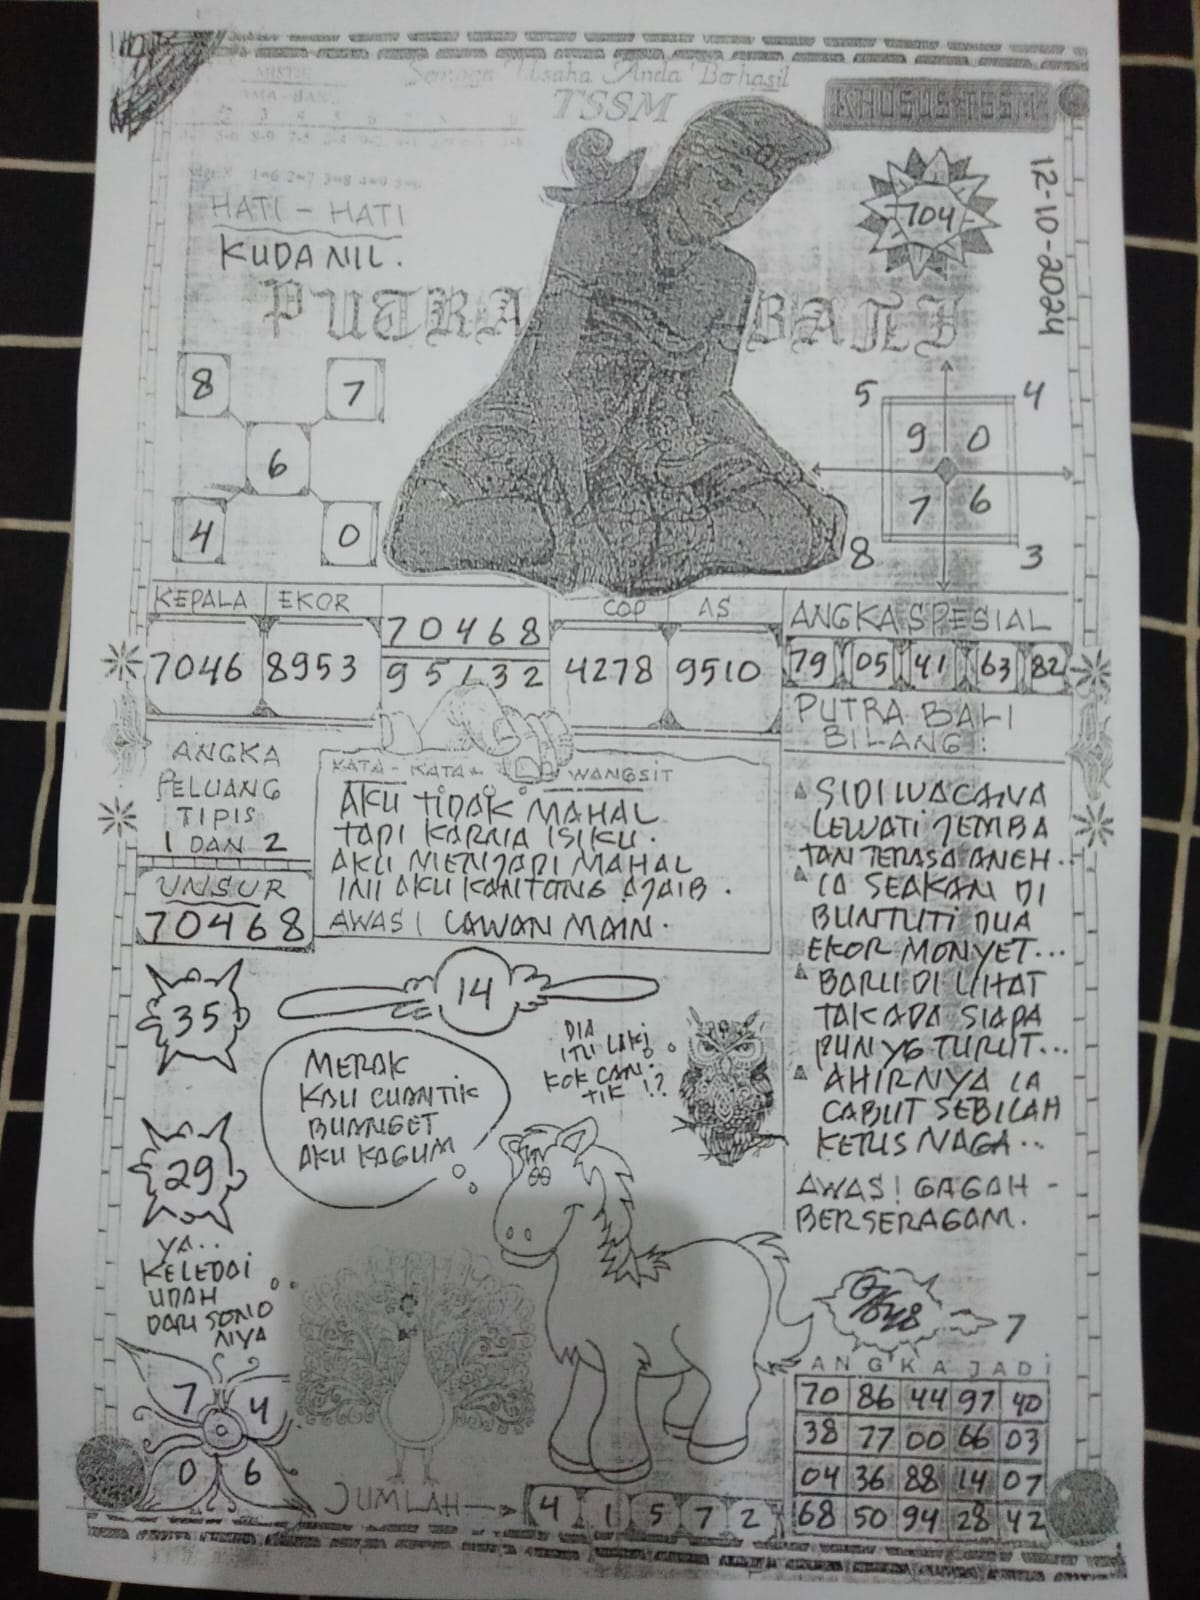 Semoga Usaha Anda Berhasil
TSSM
KHUSUS TSSM
12-10-2024
1=6 2=7 3=8 4=9 5=0
HATI - HATI
KUDA NIL.
704
PUTRA BALI
8 7
6
4 0
5 4
9 0
7 6
8 3
KEPALA EKOR
7046 8953
70468
COP AS
4278 9510
ANGKA SPESIAL
79 05 41 63 82
ANGKA
PELUANG
TIPIS
1 DAN 2
UNSUR
70468
KATA - KATA WANGSIT
AKU TIDAK MAHAL
TAPI KARNA ISIKU.
AKU MENJADI MAHAL
INI AKU KANTONG AJAIB.
AWAS! LAWAN MAIN.
PUTRA BALI
BILANG:
SIDI WACANA
LEWATI JEMBA
TAN TERASA ANEH..
IA SEAKAN DI
BUNTUTI DUA
EKOR MONYET...
BARU DI LIHAT
TAK ADA SIAPA
PUN YG TURUT...
AHIRNYA IA
CABUT SEBILAH
KERIS NAGA...
AWAS! GAGAH -
BERSERAGAM.
35
14
MERAK
KAU CUANTIK
BUANGET
AKU KAGUM
DIA
ITU LAKI
KOK CAN-
TIK !?
29
YA..
KELEDAI
UDAH
DARI SONO
NYA
7 4
0 6
7
ANGKA JADI
70 86 44 97 40
38 77 00 66 03
04 36 88 14 07
68 50 94 28 42
JUMLAH 4 1 5 7 2